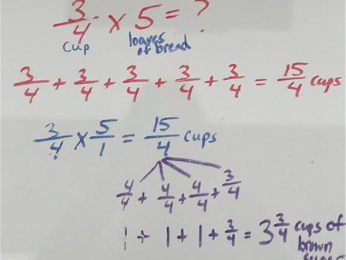 3/4 × 5 = ?
cup loaves of bread
3/4 + 3/4 + 3/4 + 3/4 + 3/4 = 15/4 cups
3/4 × 5/1 = 15/4 cups
4/4 + 4/4 + 4/4 + 3/4
1 + 1 + 1 + 3/4 = 3 3/4 cups of
brown